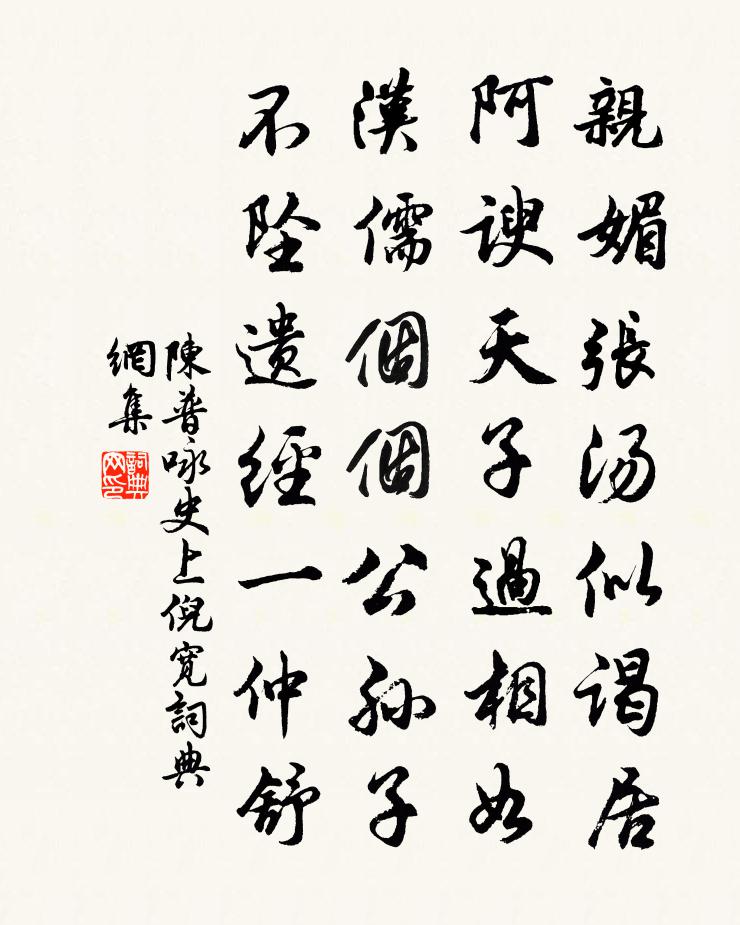 親媚張湯似謁居
阿諛天子過相如
漢儒個個公孫子
不墜遺經一仲舒
陳普咏史上倪寬詞典
網集
詞典
网印